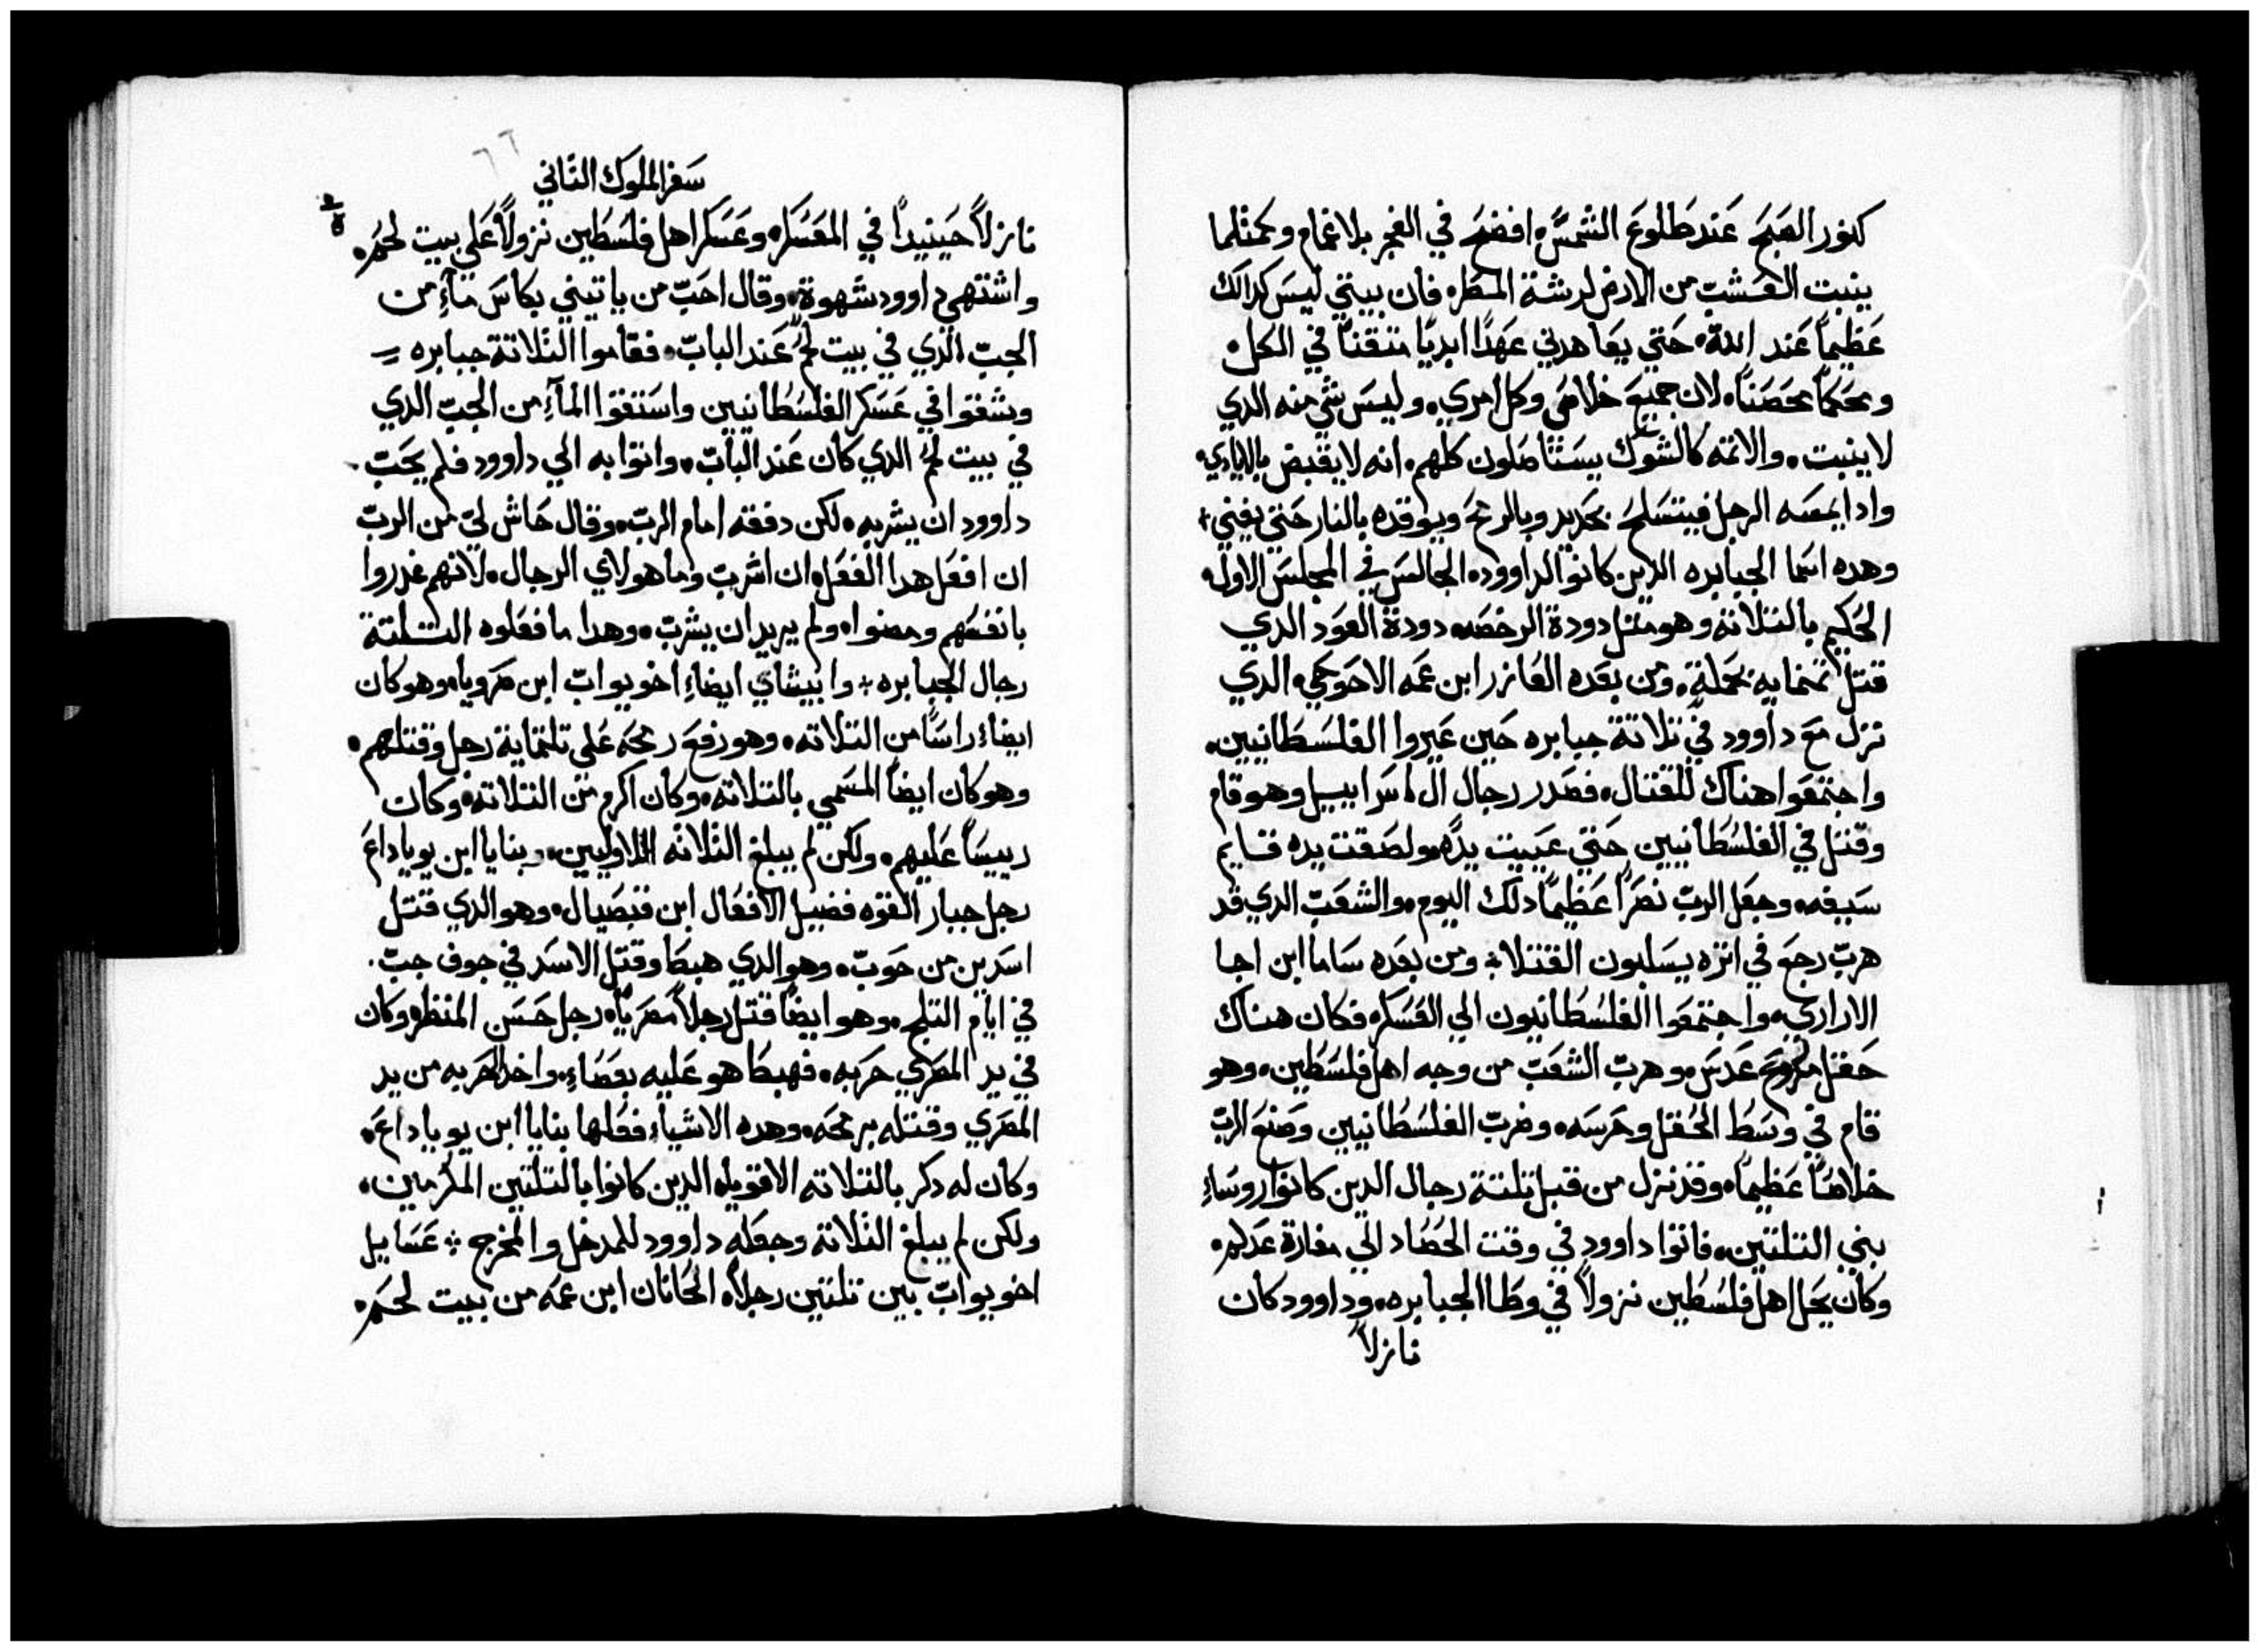 كنور الصبح عند طلوع الشمس، افضح في الفجر بلا غمام وكمثلما
ينبت العشب من الارض لرشة المطر، فان بيتي ليس كدالك
عظيماً عند الله، حتي يعاهدني عهداً ابدياً متقناً في الكل،
ومحكماً محصناً، لان جميع خلاصي وكل امري، وليس شي منه الدي
لا ينبت، والاثمه كالشوك يستاصلون كلهم، انه لا يقبض بالايادي،
وادا يمسه الرجل فيتسلح بحديد وبالرمح ويوقده بالنار حتي يفني+
وهده اسما الجبابره الدين كانوا لداوود، الجالس في المجلس الاول
الحكيم بالتلاته وهو مثل دودة الرخصه، دودة العود الدي
قتل تمنمايه بحملة، ومن بعده العازر ابن عمه الاحوحي، الدي
نزل مع داوود في تلاتة جبابره حين عيروا الفلسطانيين،
واجتمعوا هناك للقتال، فصدر رجال ال اسراييل وهو قام
وقتل في الفلسطانيين حتي عييت يده، ولصقت يده قايم
سيفه، وجعل الرب نصراً عظيماً دلك اليوم، والشعب الدي قد
هرب رجع في اثره يسلبون القتلا، ومن بعده ساما ابن اجا
الاراري، واجتمعوا الفلسطانيون الي العسكر، فكان هناك
حقل مزروع عدس، وهرب الشعب من وجه اهل فلسطين، وهو
قام في وسط الحقل وحرسه، وضرب الفلسطانيين وصنع الرب
خلاصاً عظيماً، وقد نزل من قبل تلتة رجال الدين كانوا روساء
بني التلتين، فاتوا داوود في وقت الحصاد الي مغارة عدلم،
وكان يحل اهل فلسطين نزولاً في وطا الجبابره، وداوود كان
نازلاً
٦٦
سفر الملوك الثاني
نازلاً حينيداً في المعسكر، وعسكر اهل فلسطين نزولاً علي بيت لحم،
واشتهي داوود شهوة، وقال احب من ياتيني بكاس مآءٍ من
الجب الدي في بيت لحم عند الباب، فقاموا الثلاثة جبابره
وشقوا في عسكر الفلسطانيين واستقوا المآءِ من الجب الدي
في بيت لحم الدي كان عند الباب، واتوا به الي داوود فلم يحب
داوود ان يشربه، لكن دفقه امام الرب، وقال حاش لي من الرب
ان افعل هدا الفعل، ان اشرب دما هولاي الرجال، لانهم غدروا
بانفسهم ومضوا، ولم يريد ان يشرب، وهدا ما فعلوه التلتة
رجال الجبابره، وابيشاي ايضاً اخو يواب ابن صرويا، وهو كان
ايضاً راساً من التلاته، وهو رفع رمحه علي تلتماية رجل وقتلهم،
وهو كان ايضاً المسمي بالتلاته، وكان اكرم من التلاته، وكان
رييساً عليهم، ولكن لم يبلغ الثلاثه الاوليين، وبنايا ابن يوياداع
رجل جبار القوه فضيل الافعال ابن قبصيال، وهو الدي قتل
اسدين من حوب، وهو الدي هبط وقتل الاسد في جوف جب.
في ايام التلج، وهو ايضاً قتل رجلاً مصرياً، رجل حسن المنظر، وكان
في يد المصري حربه، فهبط هو عليه بعصاءِ، واخد الحربه من يد
المصري وقتله برمحه، وهده الاشياء فعلها بنايا ابن يوياداع،
وكان له دكر بالتلاته الاقويا، الدين كانوا بالتلتين المكرمين،
ولكن لم يبلغ الثلاثه وجعله داوود للمدخل والمخرج، عسايل
اخو يواب بين تلتين رجلاً، الحانان ابن عمه من بيت لحم،